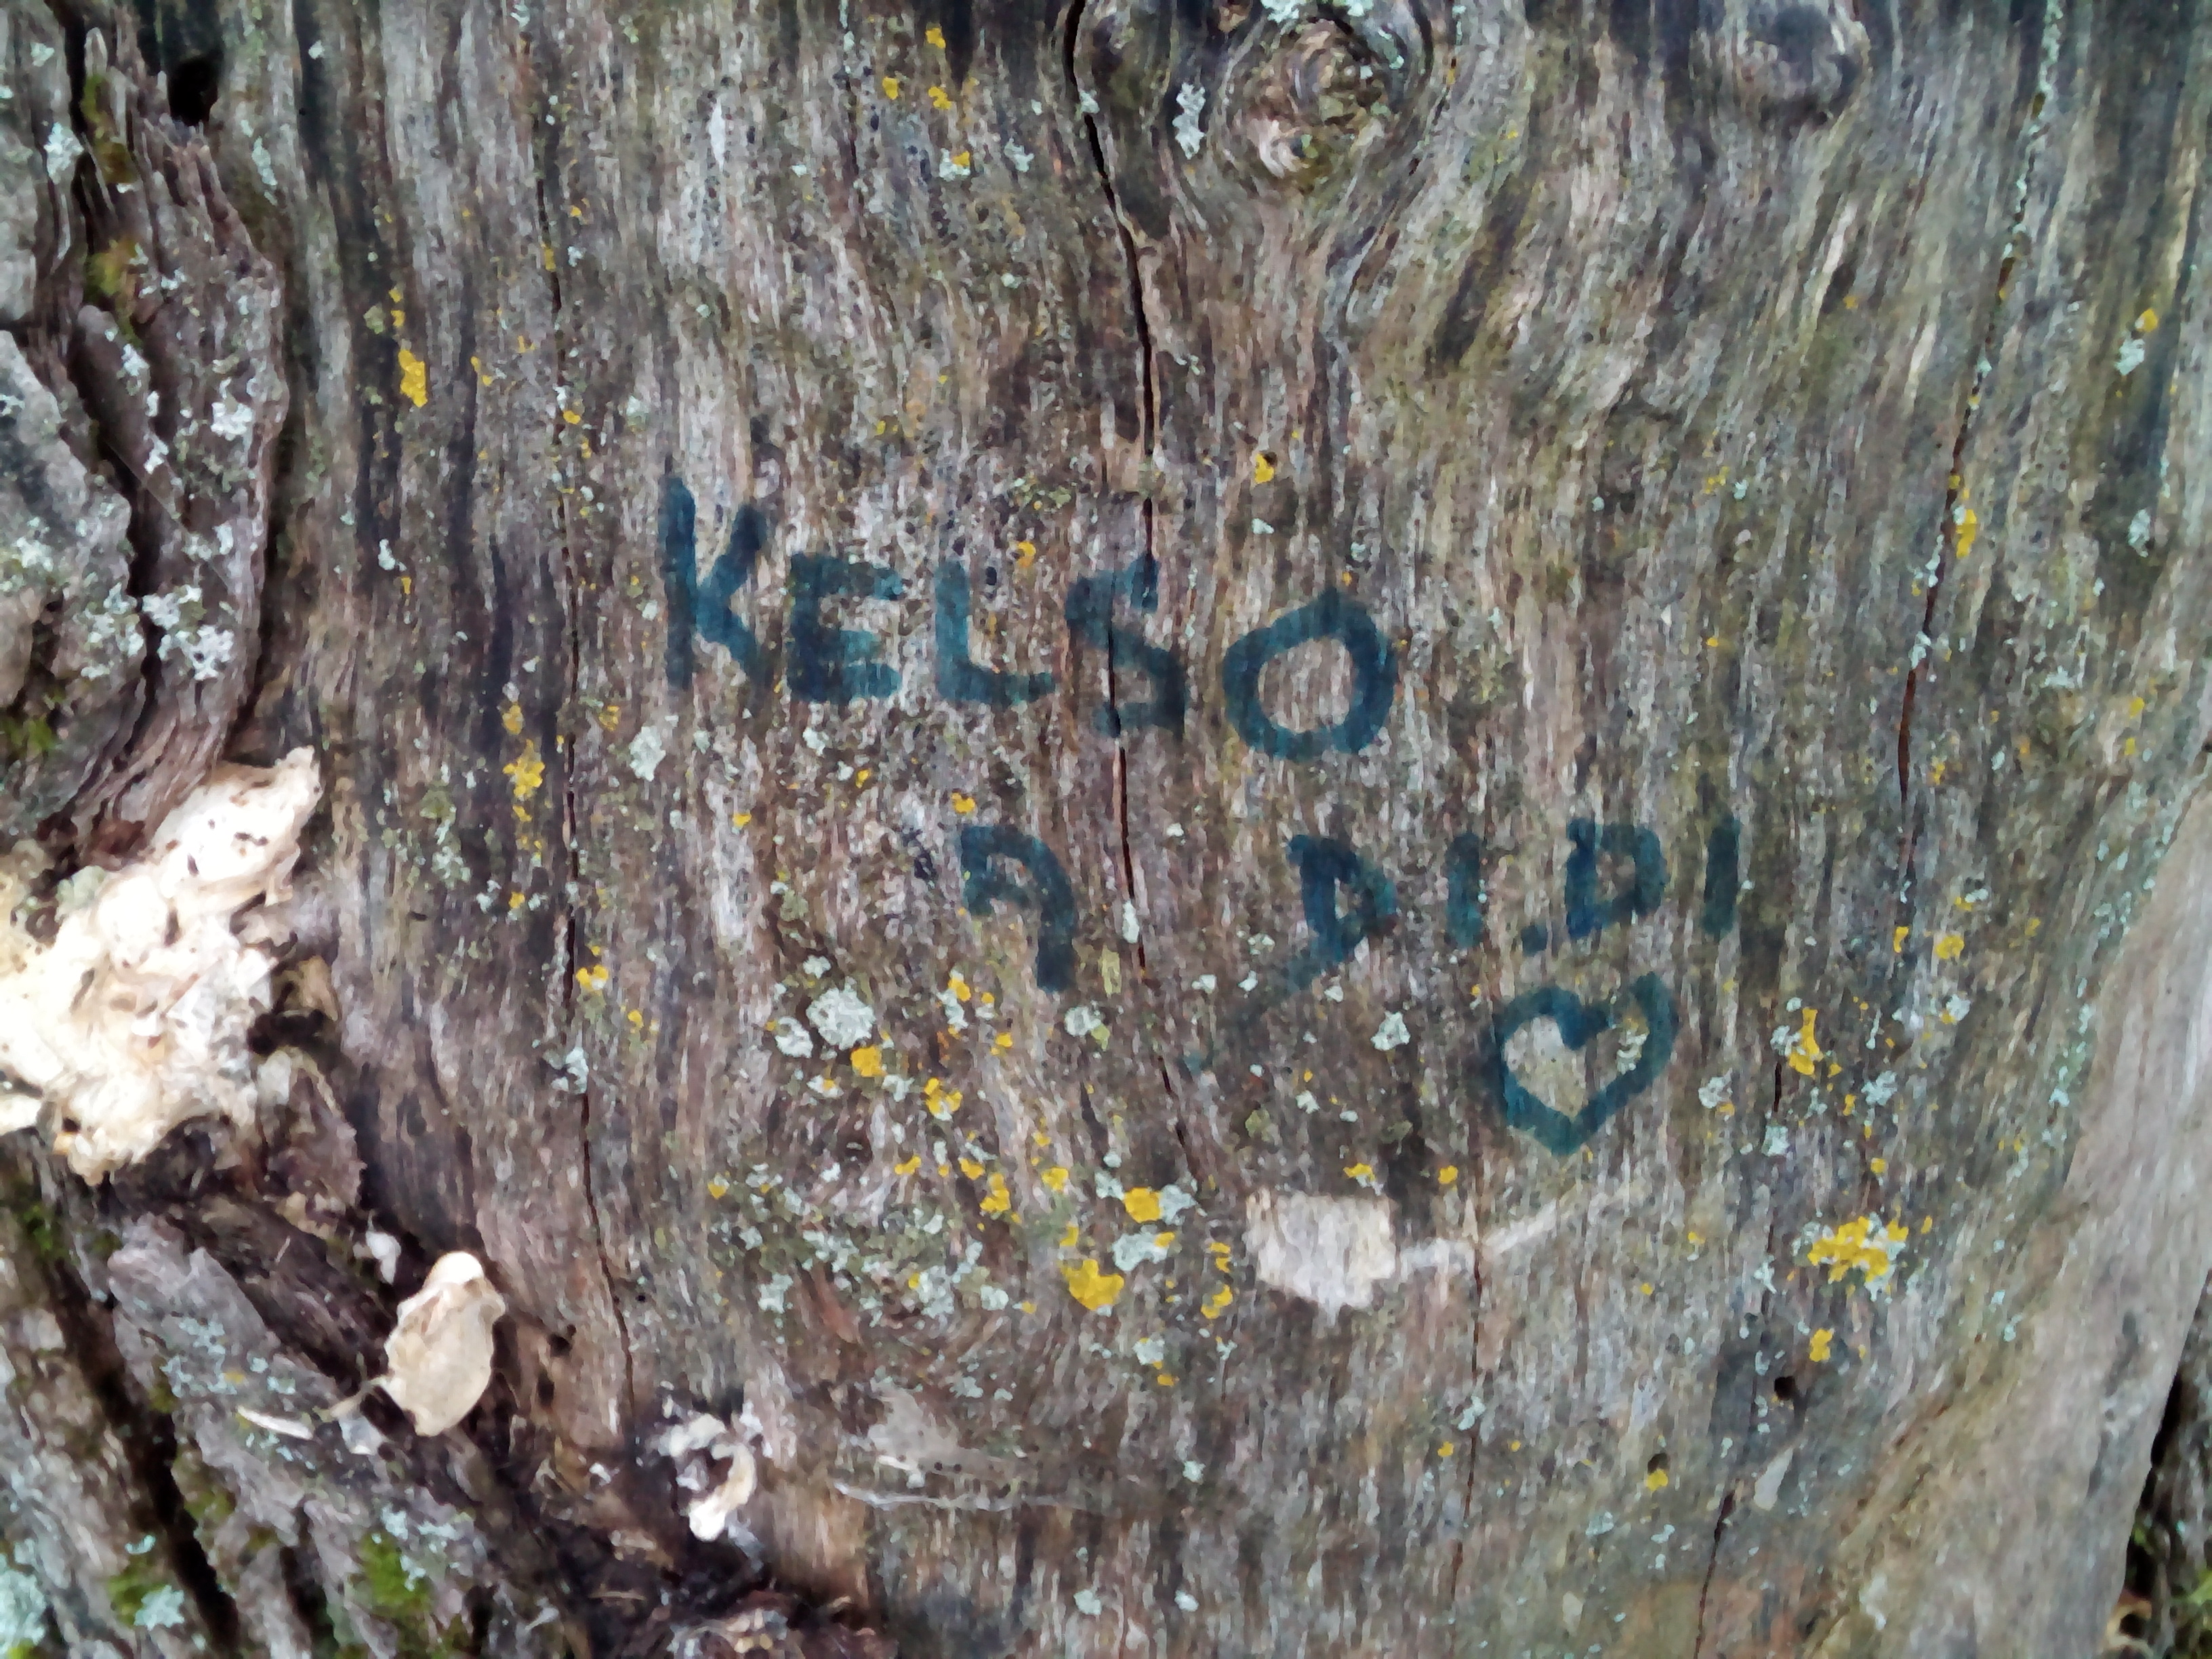 KELSO
A DI.DI